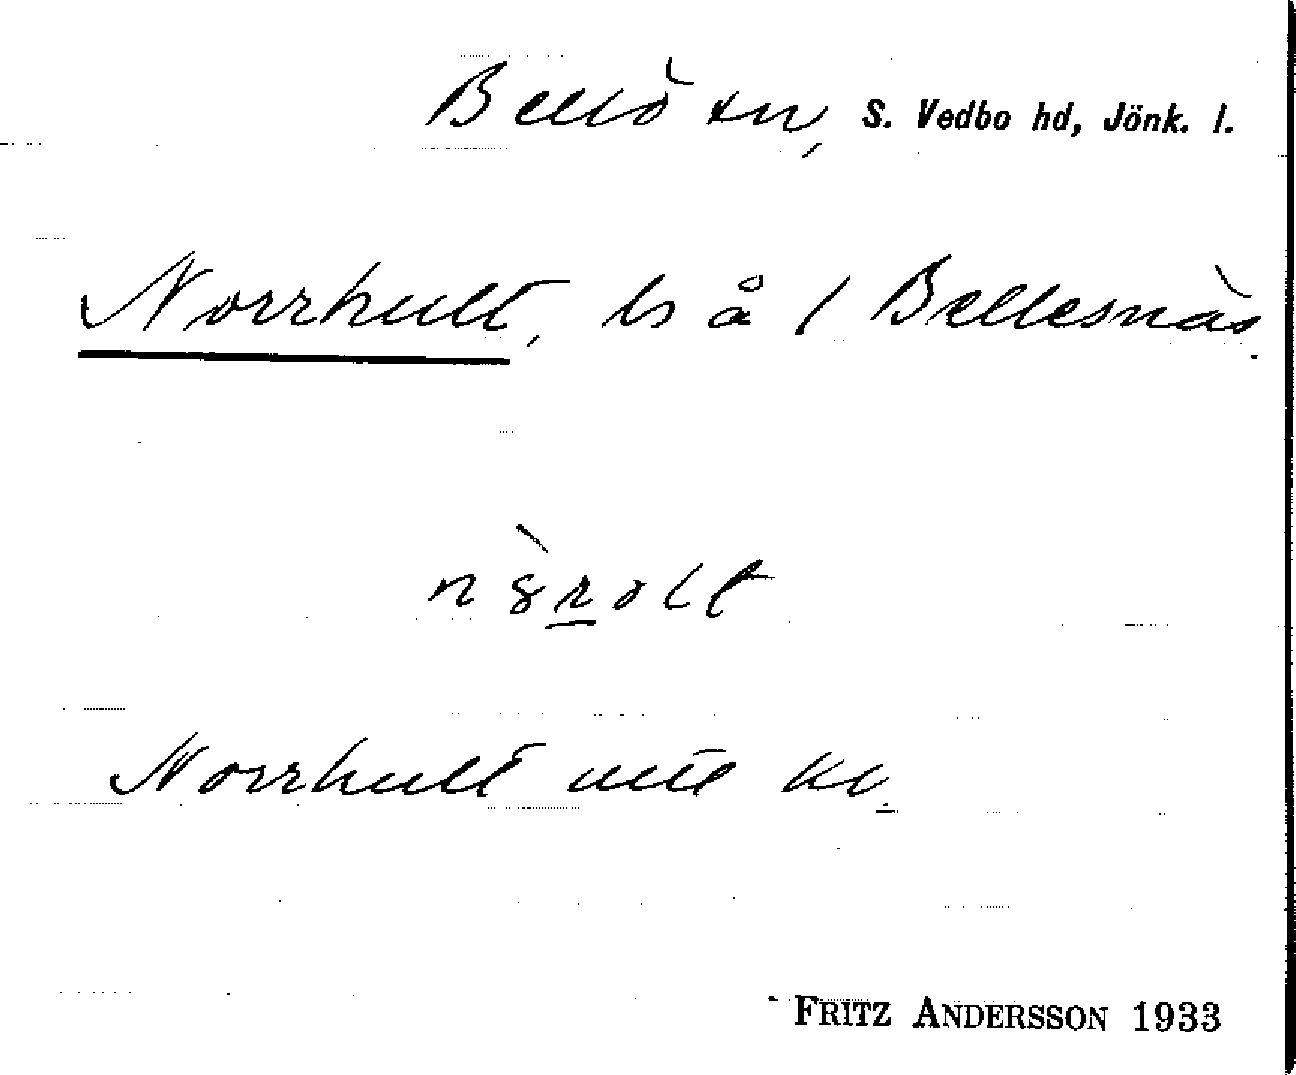 Bellö sn, S. Vedbo hd, Jönk. l.
Norrhult, ls å 1 Bellesnäs.
Norrhult
FRITZ ANDERSSON 1933